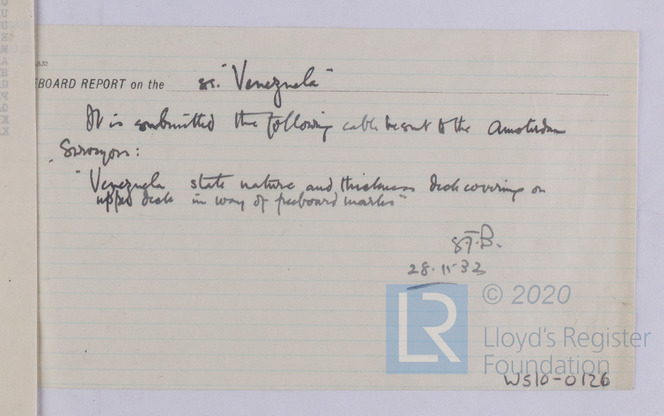 EBOARD REPORT on the ss. "Venezuela"
It is submitted the following cable be sent to the Amsterdam
Surveyors:
"Venezuela state nature and thickness deck coverings on
upper deck in way of freeboard marks"
28.11.32
LR
© 2020
Lloyd's Register
Foundation
WS10-0126